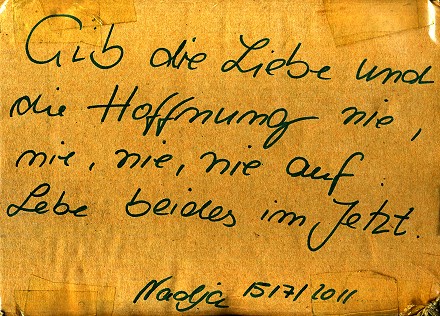 Gib die Liebe und
die Hoffnung nie,
nie, nie, nie auf.
Lebe beides im Jetzt.
Nadja 15/7/2011